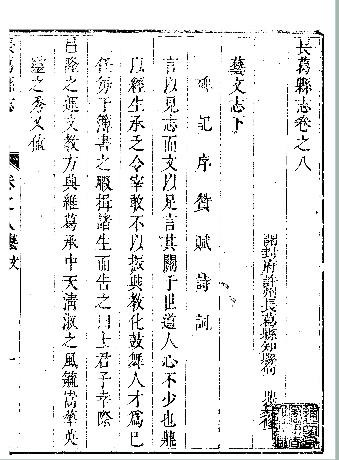 長葛縣志卷之八
開封府許州長葛縣知縣何鼎纂修
藝文志下
碑記序贊賦詩詞
言以見志而文以見言其關于世道人心不少也鼎
以經生承乏令宰敢不以振興教化鼓舞人才爲己
任每于簿書之暇揖諸生而告之曰士君子幸際
昌隆之運文教方興維葛承中天清淑之風毓嵩華英
靈之秀又值
長葛縣志
卷之八藝文
一